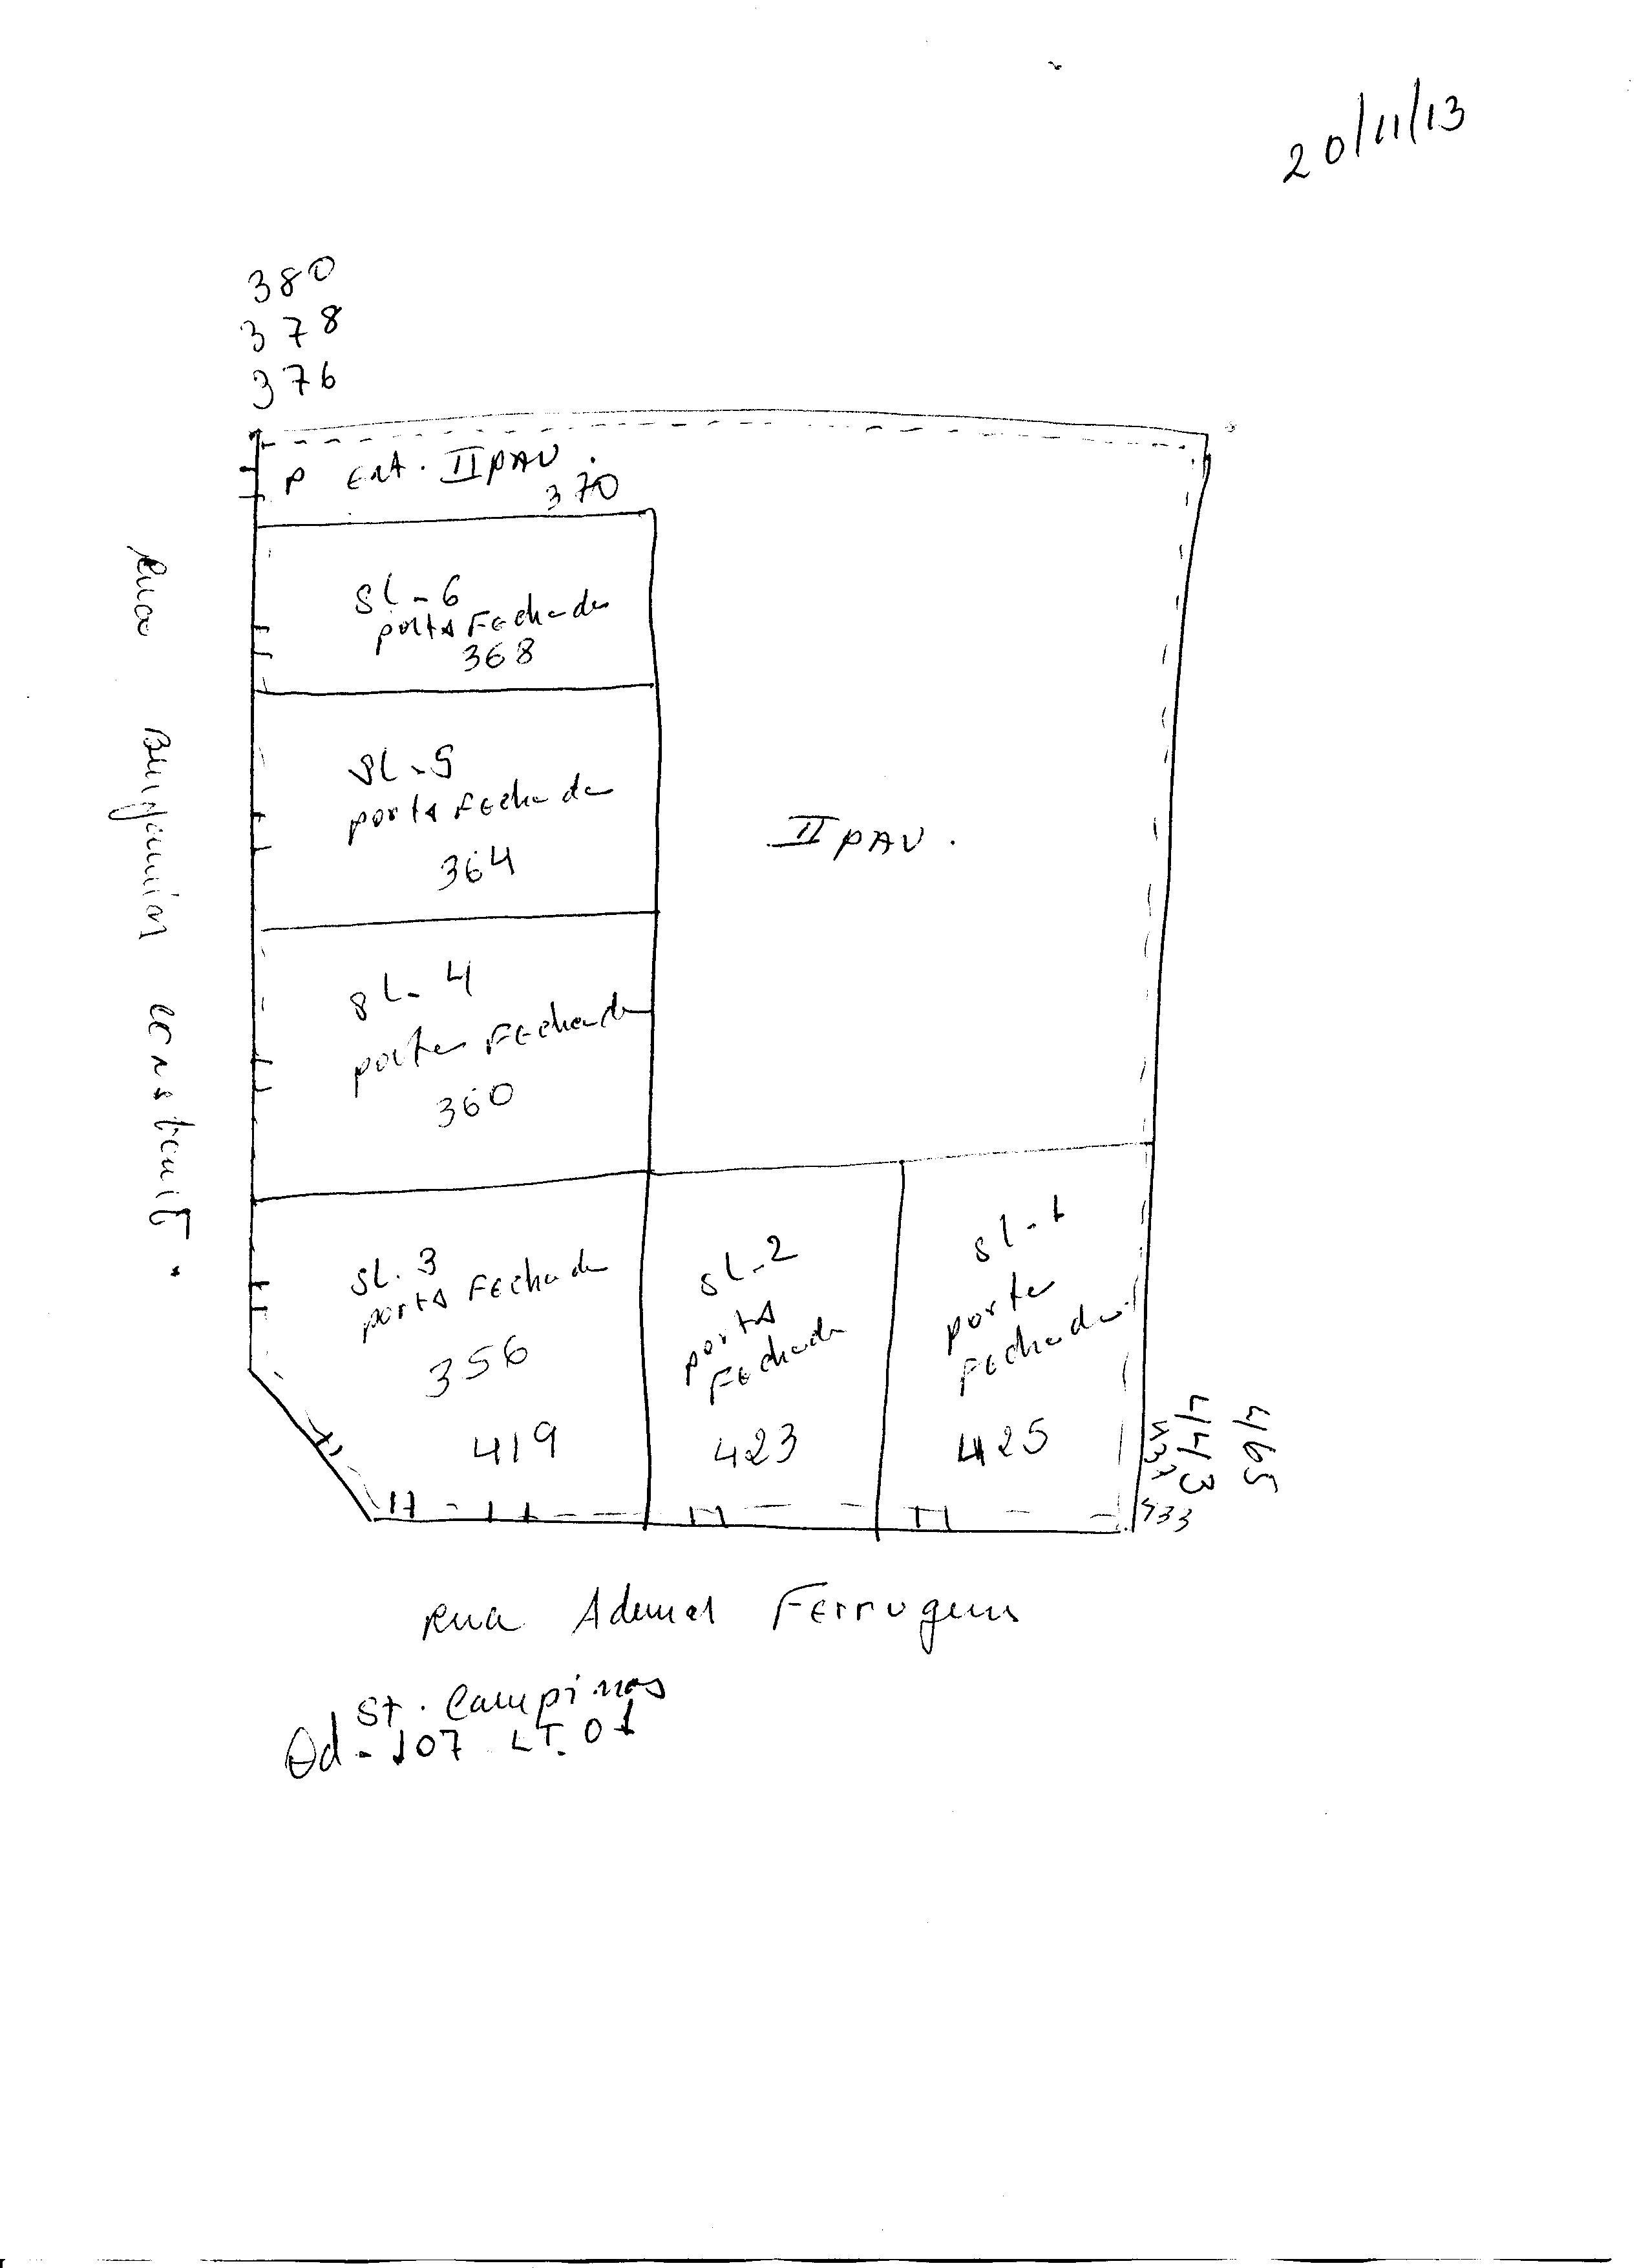 20/11/13
380
378
376
P Ent. II PAV.
370
SL-6
porta Fechada
368
SL-5
porta Fechada
364
II PAV.
SL-4
porta Fechada
360
Rua Benjamin Constant.
SL.3
porta Fechada
356
419
SL-2
porta
Fechada
423
SL-1
porta
Fechada
425
433
437
443
465
Rua Ademar Ferrugem
St. Campinas
Qd-107 LT.01